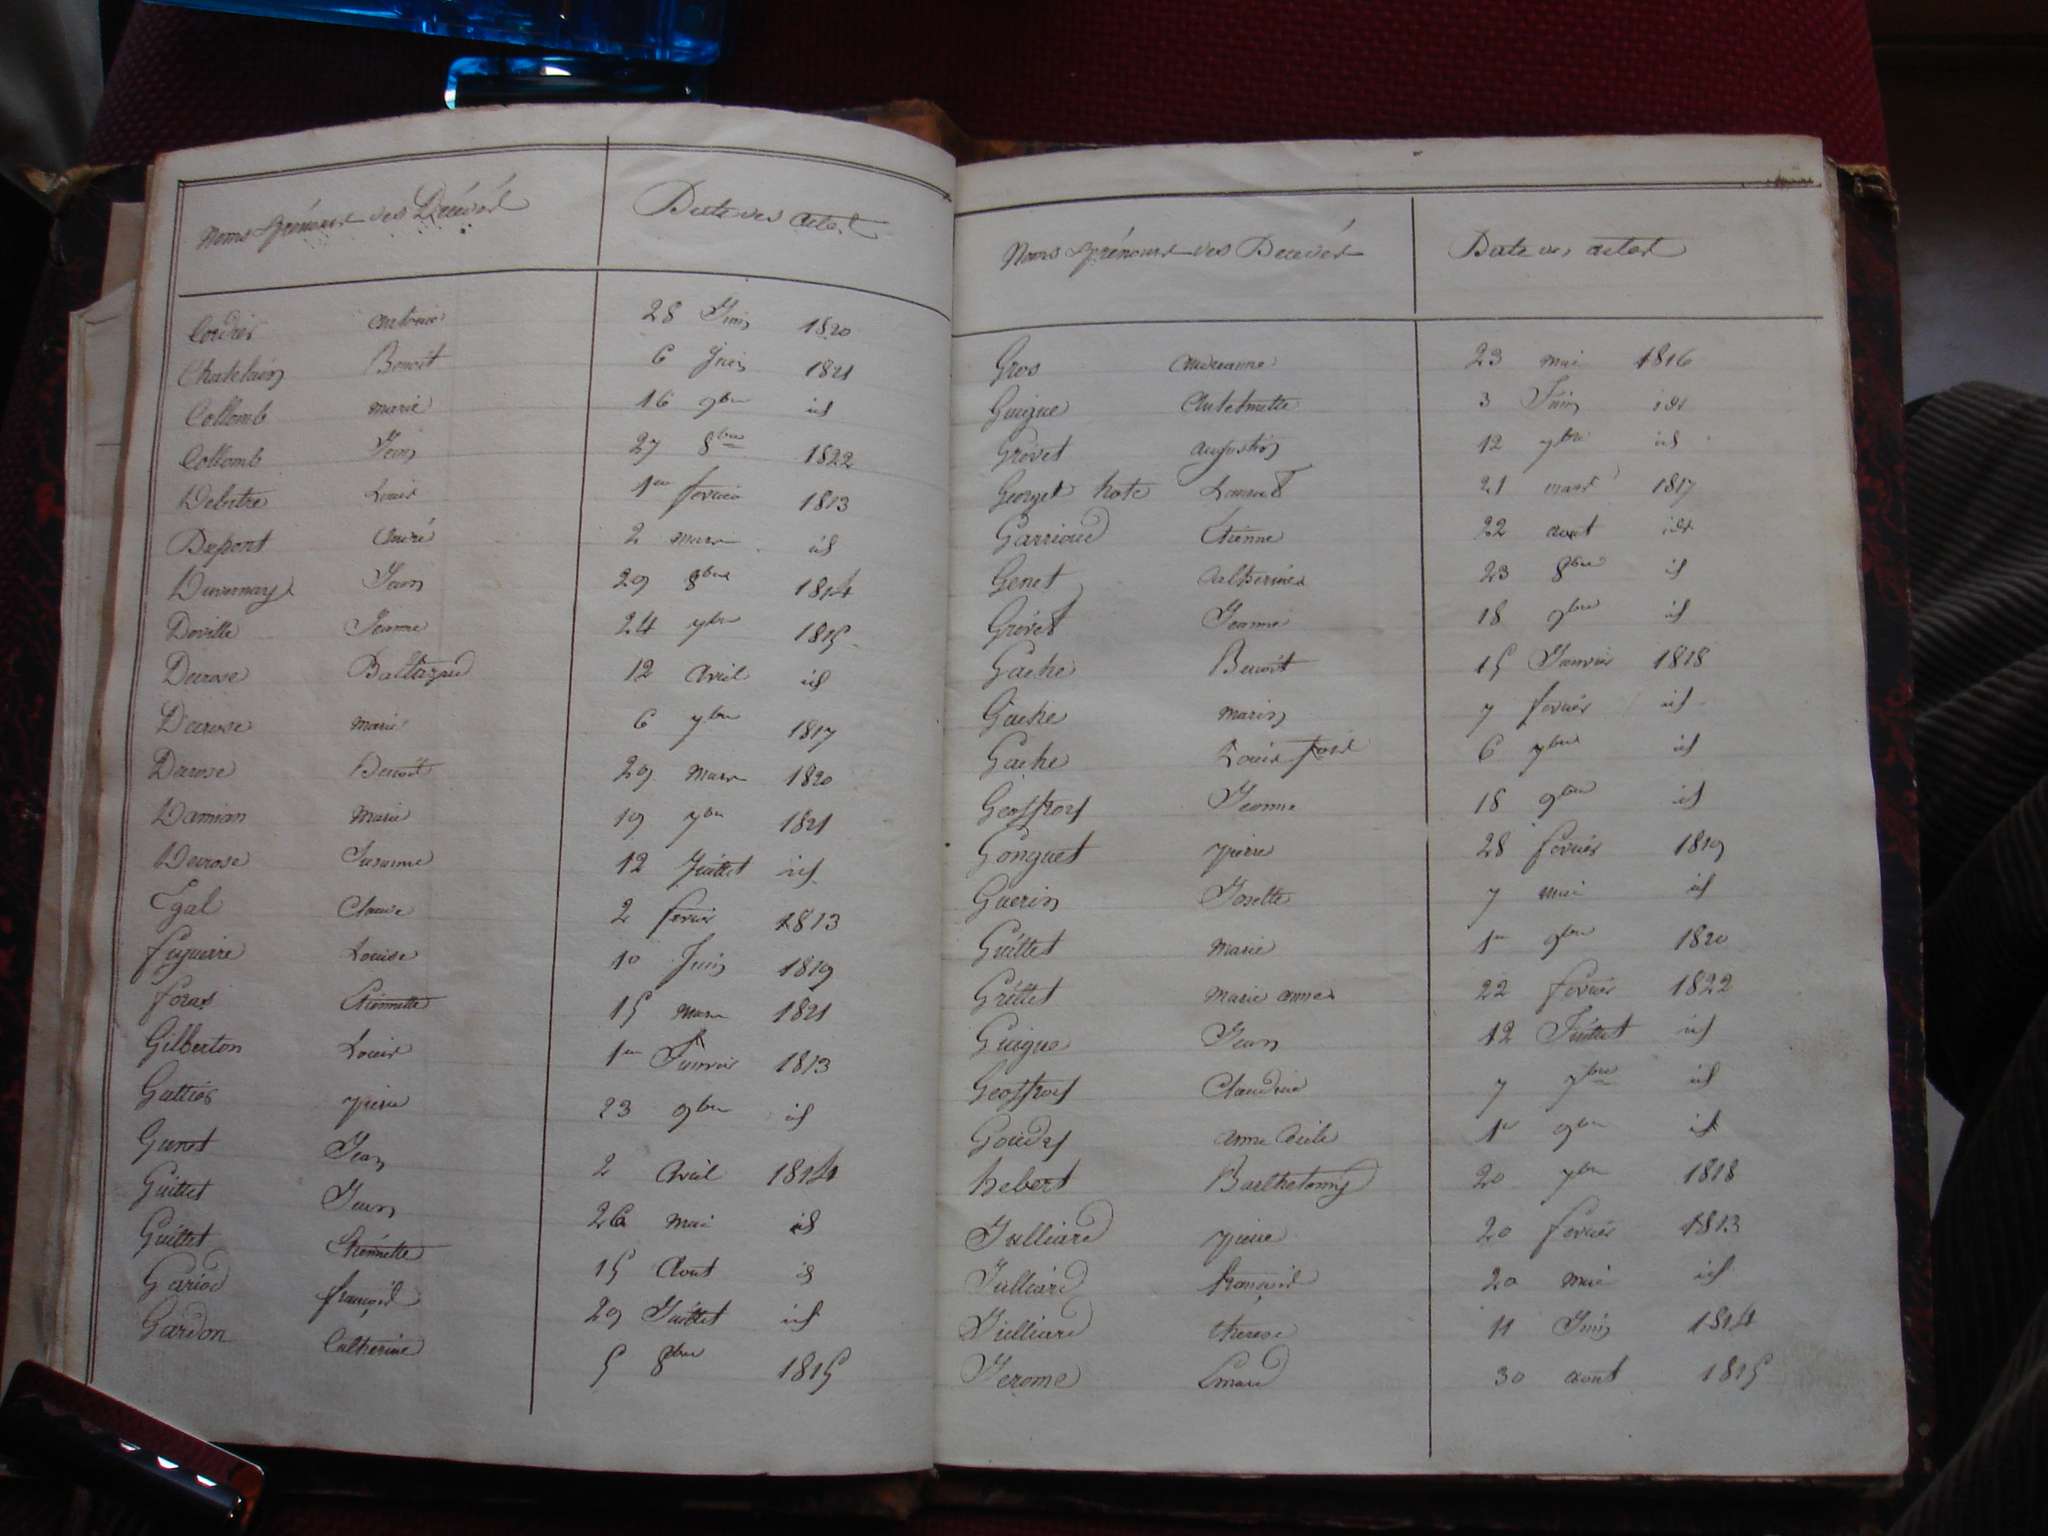 Noms & prénoms des Décédés Date des actes
Cordier antoine 28 Juin 1820
Chatelain Benoit 6 Juin 1821
Collomb marie 16 9bre id
Collomb Jean 27 8bre 1822
Debitre Louis 1er fevrier 1813
Dupont André 2 mars id
Duvernay Jean 29 8bre 1814
Doville Jeanne 24 7bre 1815
Decrose Baltazard 12 Avril id
Decrose marie 6 7bre 1817
Decrose Benoit 29 mars 1820
Damian marie 19 7bre 1821
Decrose Susanne 12 Juillet id
Egal Claude 2 fevrier 1813
fiquaire Louise 10 Juin 1819
foras Etiennette 15 mars 1821
Gilberton Louis 1er Janvier 1813
Gattier pierre 23 9bre id
Gunet Jean 2 Avril 1814
Guillet Jean 26 mai id
Guillet Etiennette 15 Aout id
Gariod françois 29 Juillet id
Gardon Catherine 5 8bre 1815
Noms & prénoms des Décédés Date des actes
Gros andréanne 23 mai 1816
Guigue Antelmette 3 Juin id
Grévet augustin 12 7bre id
Georget hote Laurent 21 mars 1817
Garrioud Etienne 22 aout id
Genet Catherine 23 8bre id
Grévet Jeanne 18 9bre id
Gache Benoit 15 Janvier 1818
Gache marin 7 fevrier id
Gache Louis 6 7bre id
Geoffroy Jeanne 18 9bre id
Gonguet pierre 28 fevrier 1819
Guerin Josette 7 mai id
Guillet marie 1er 9bre 1820
Grillet marie anne 22 fevrier 1822
Guigue Jean 12 Juillet id
Geoffroy Claudine 7 7bre id
Goudet anne Cécile 1er 9bre id
hebert Barthelemy 20 7bre 1818
Julliard pierre 20 fevrier 1813
Julliard françois 20 mai id
Julliard therese 11 Juin 1814
Jerome Emard 30 aout 1815